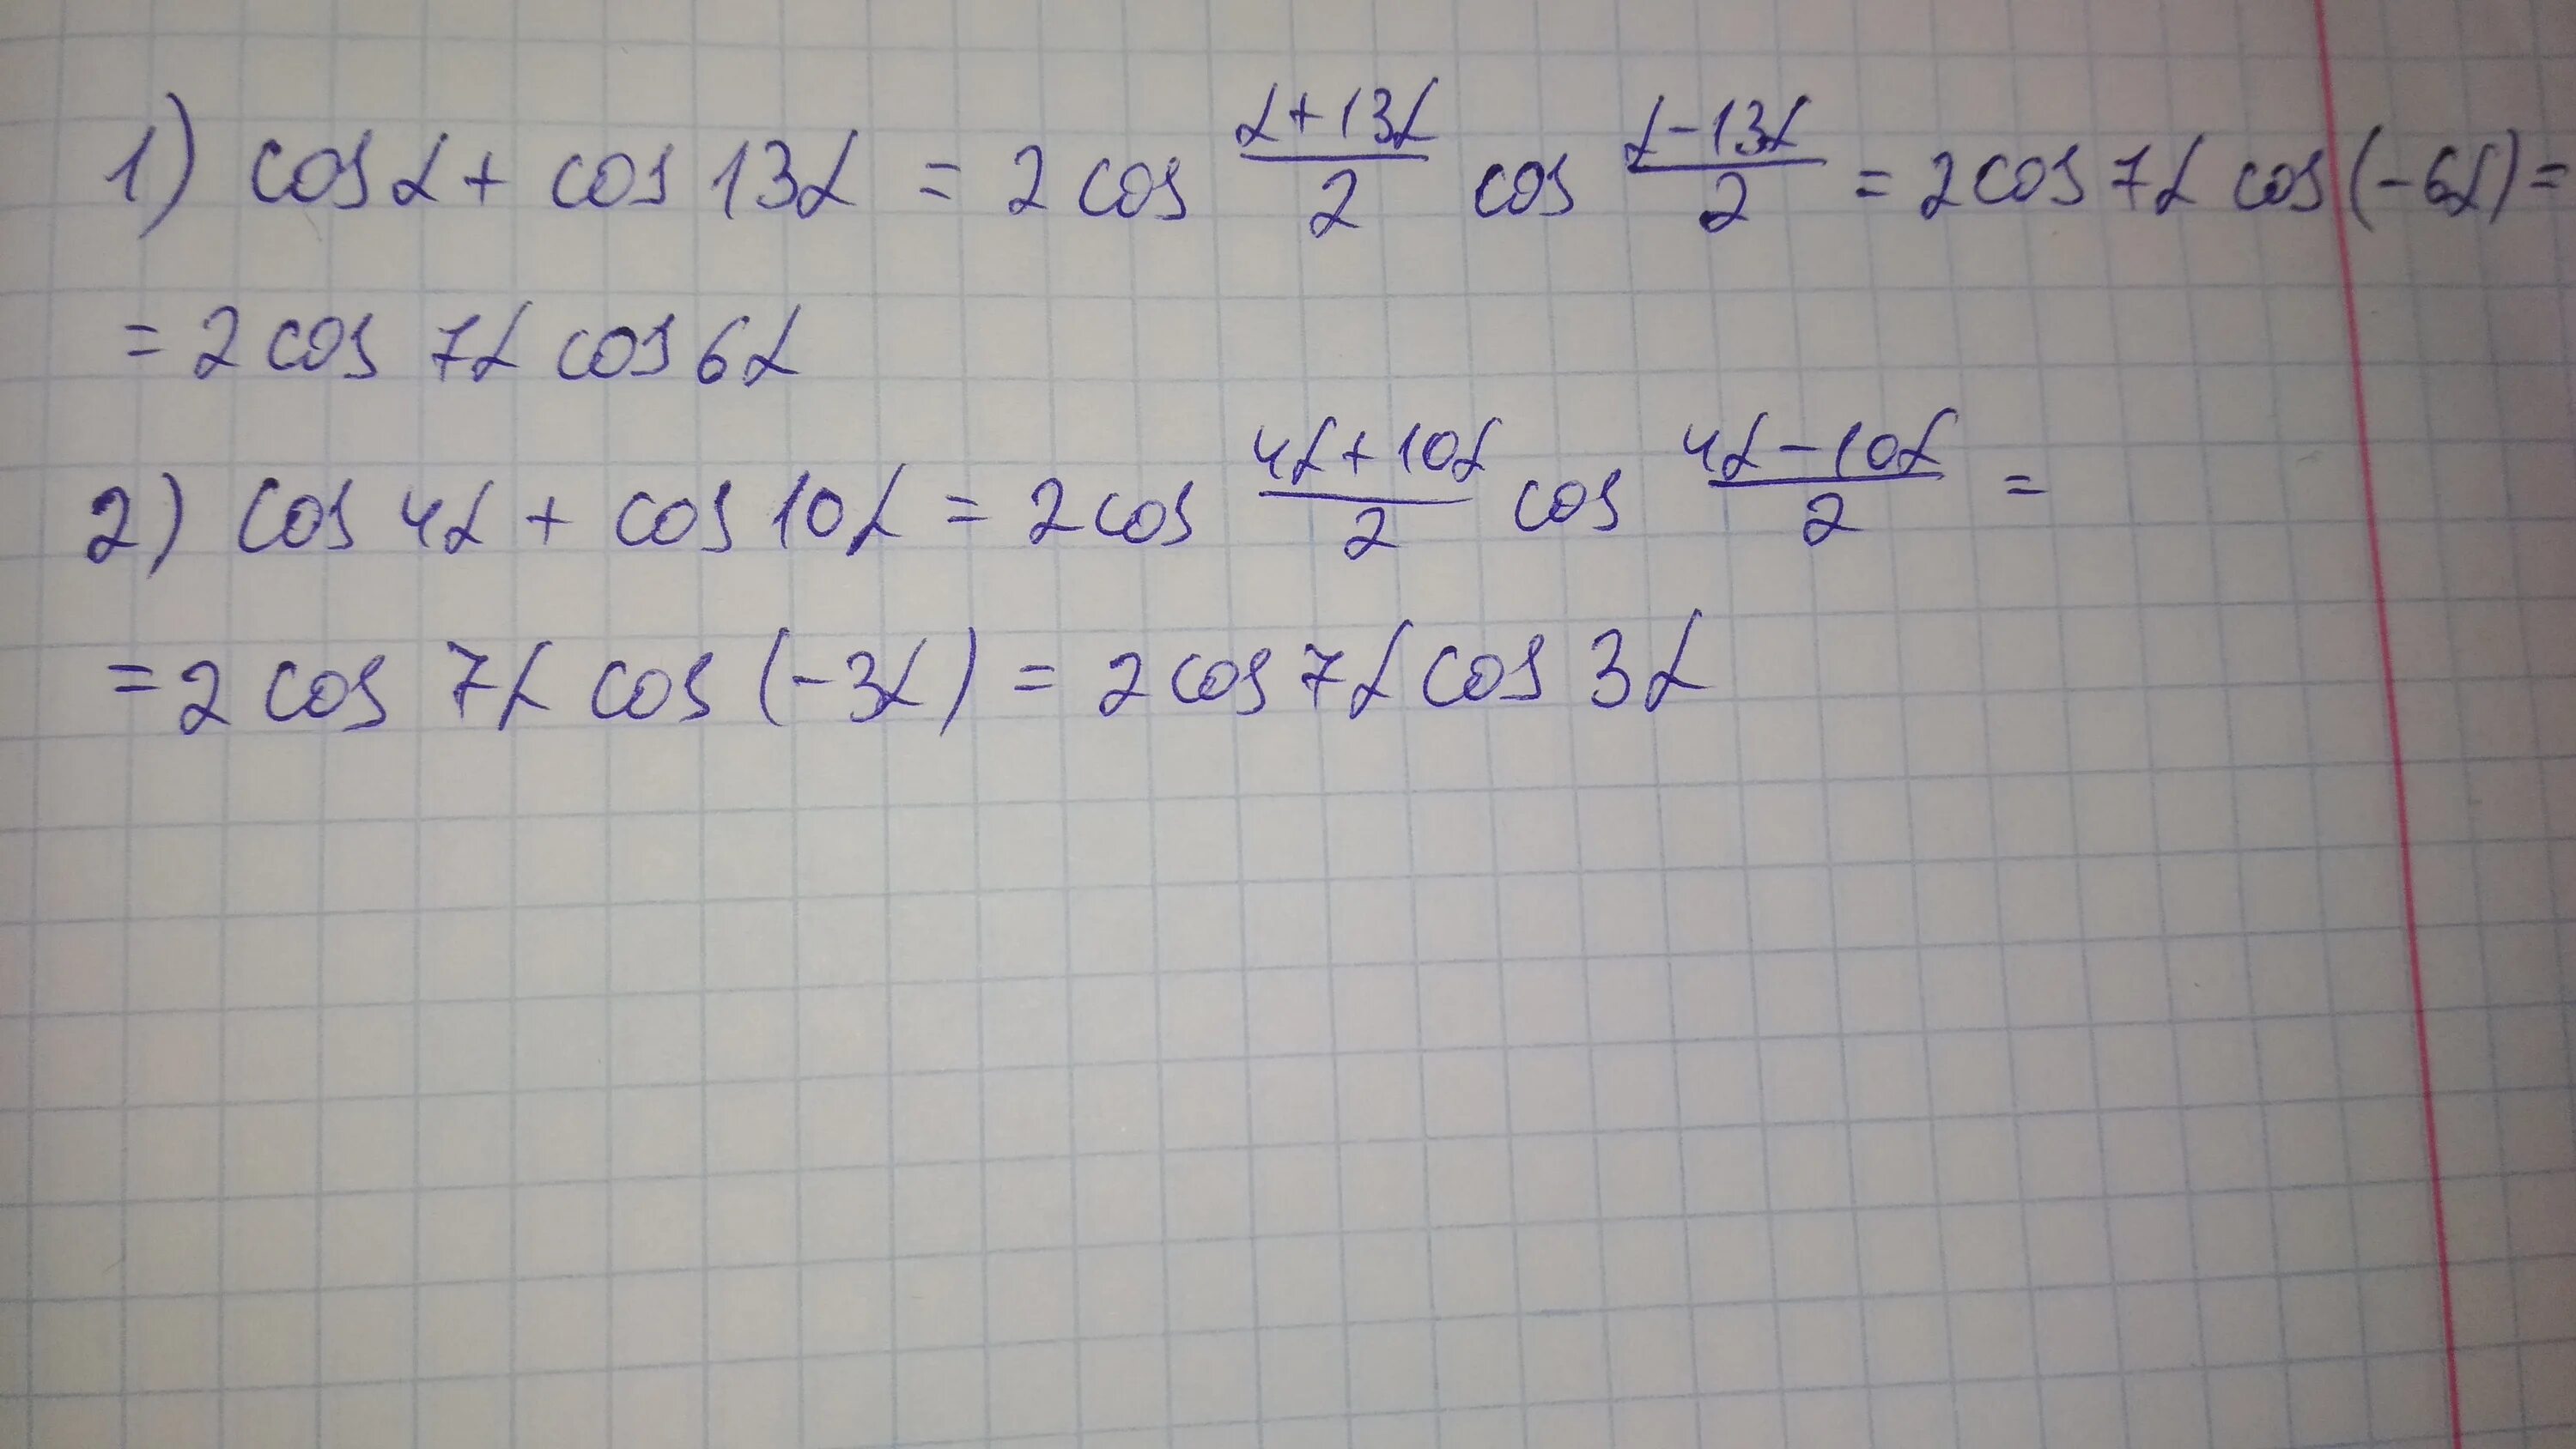 1) cos α + cos 13α = 2 cos (α+13α)/2 cos (α−13α)/2 = 2 cos 7α cos (−6α) =
= 2 cos 7α cos 6α
2) cos 4α + cos 10α = 2 cos (4α+10α)/2 cos (4α−10α)/2 =
= 2 cos 7α cos (−3α) = 2 cos 7α cos 3α